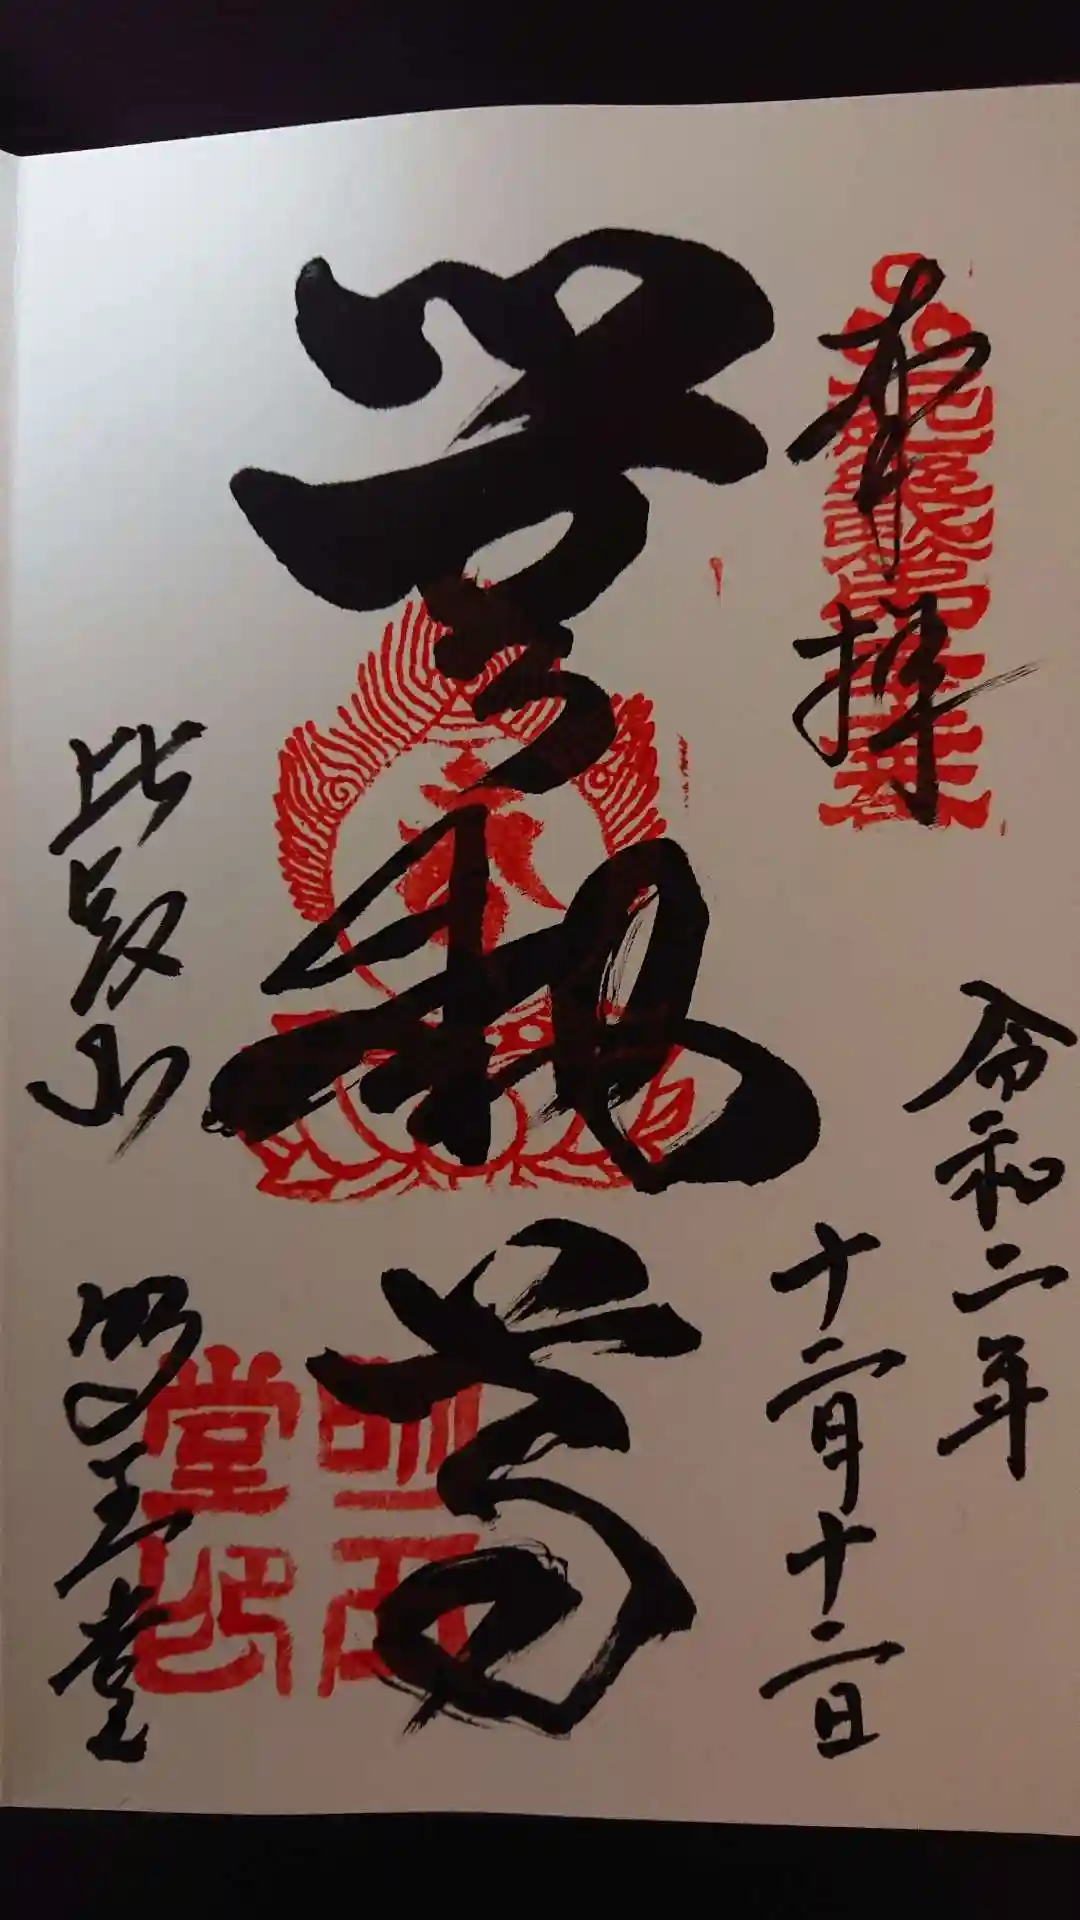 奉拝
令和二年
十二月十二日
無動尊
比叡山
明王堂
明王
堂印